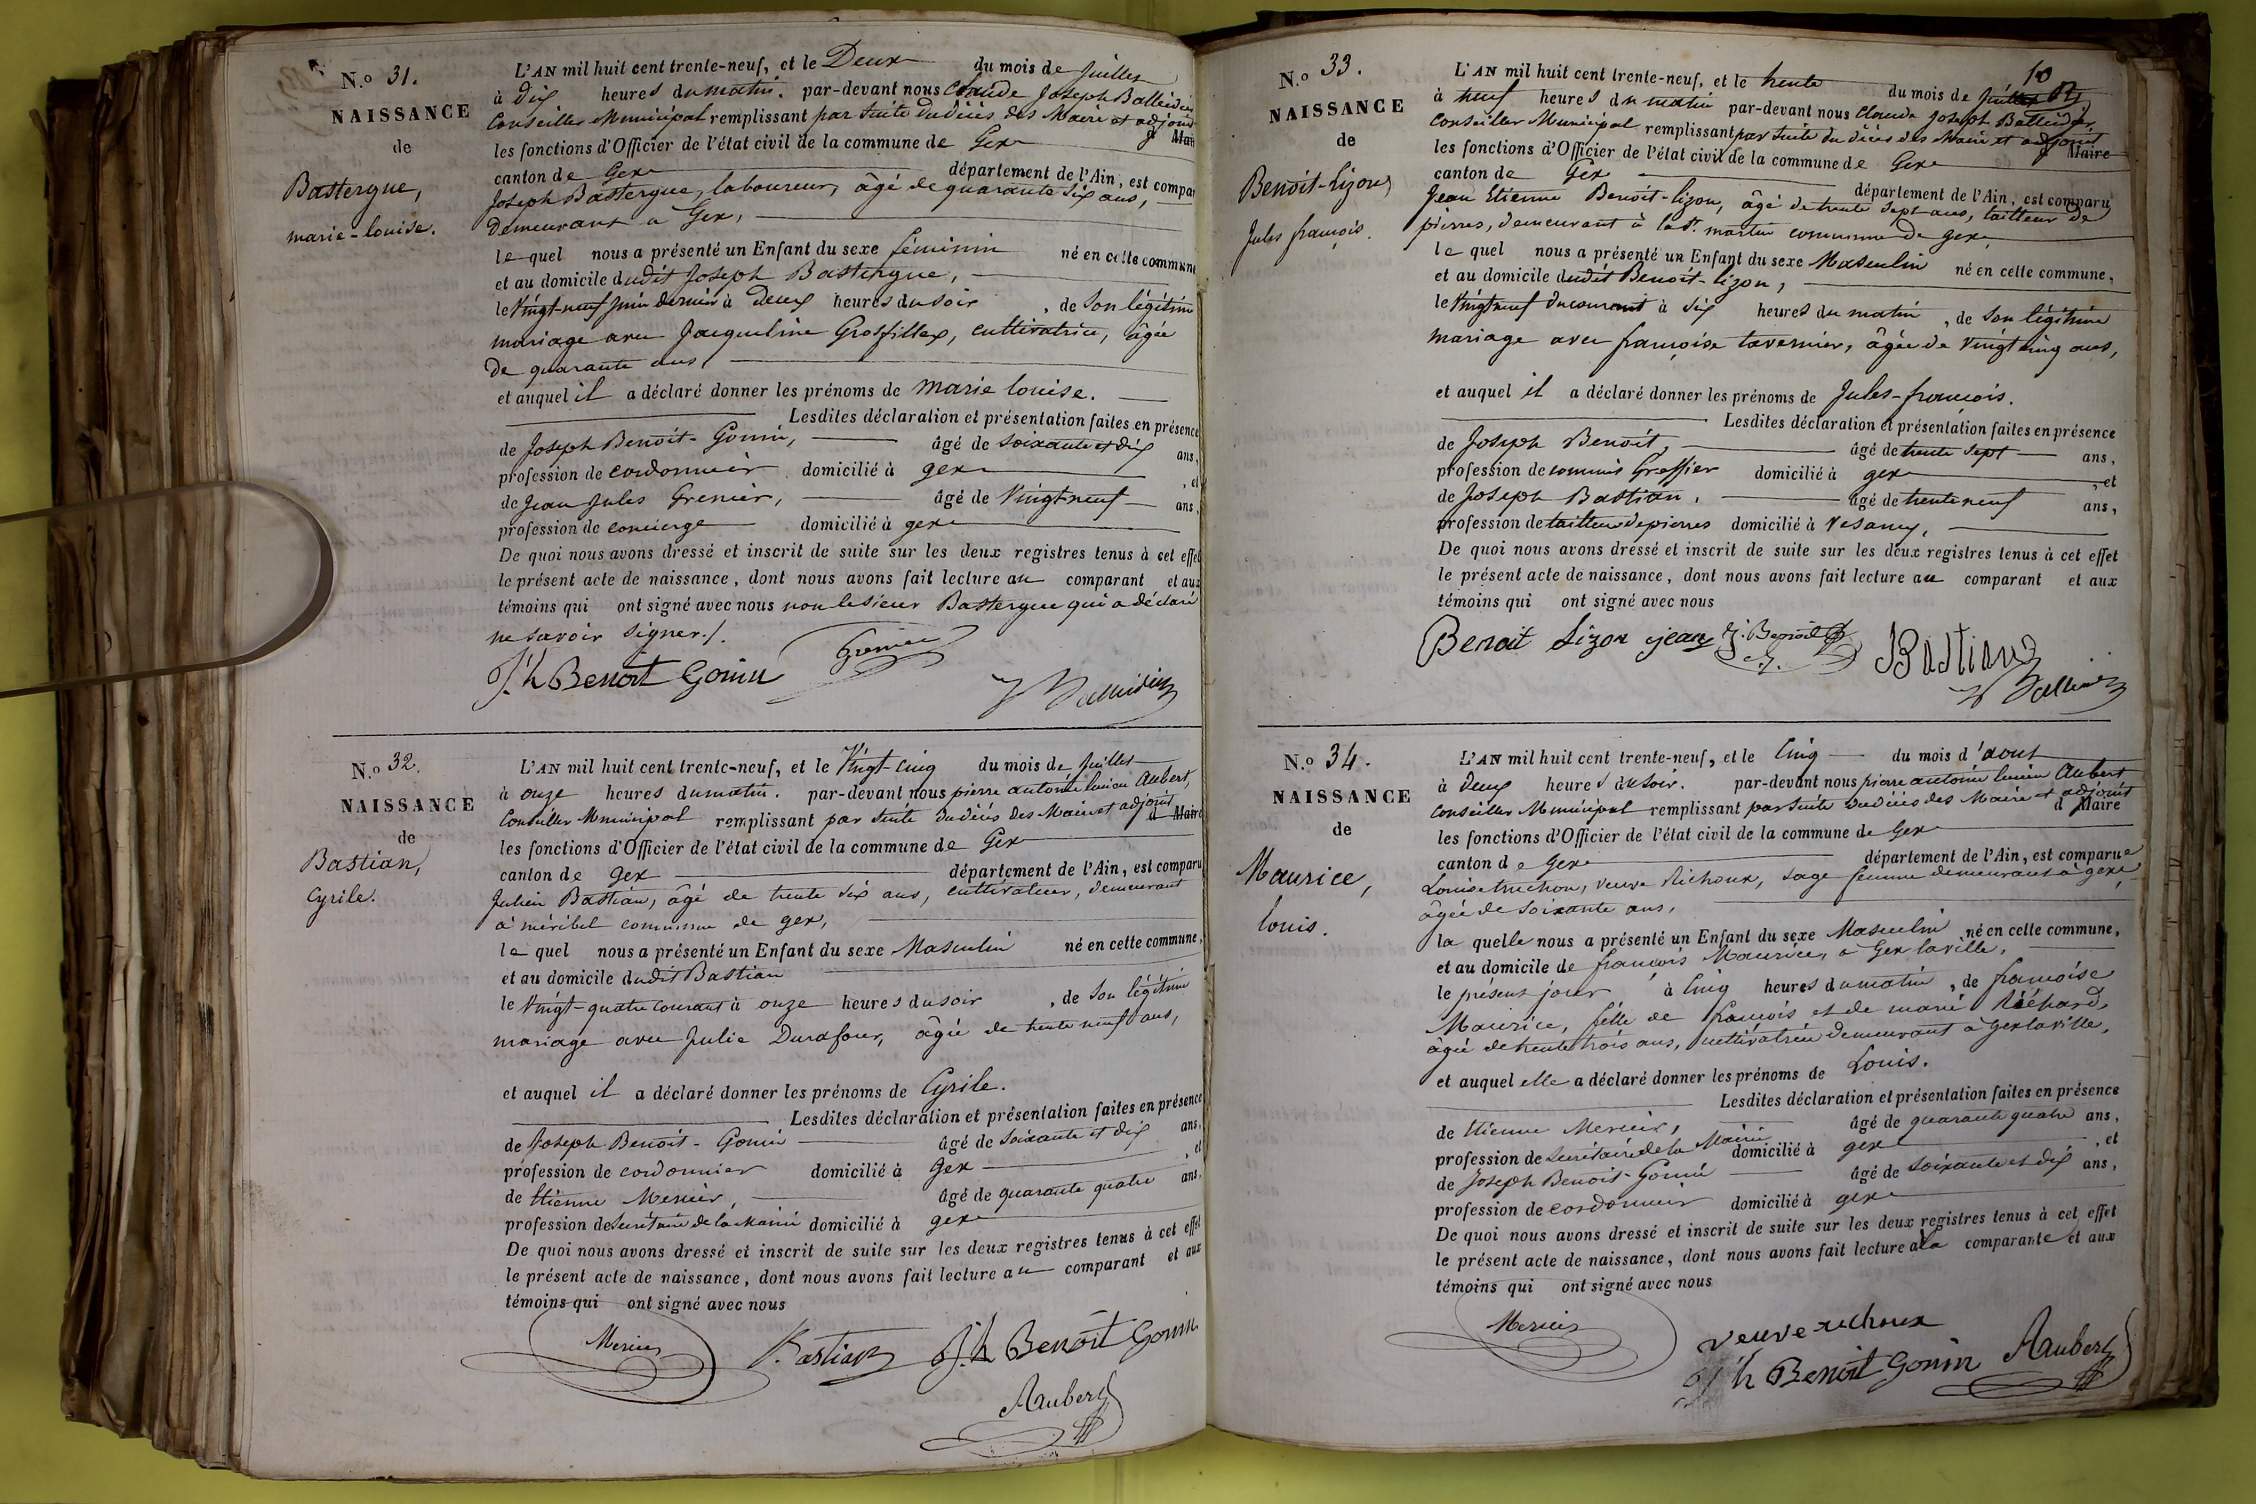 N.o 31.
NAISSANCE
de
Bastergue,
marie-louise.
L'AN mil huit cent trente-neuf, et le Deux du mois de juillet
à Dix heures du matin. par-devant nous Claude Joseph Balleidier
Conseiller Municipal remplissant par suite du décès des Maire et adjoint
les fonctions d'Officier de l'état civil de la commune de Gex d Maire
canton de Gex département de l'Ain, est comparu
Joseph Bastergue, laboureur, âgé de quarante six ans,
demeurant à Gex,
le quel nous a présenté un Enfant du sexe féminin né en cette commune
et au domicile dudit Joseph Bastergue,
le Vingt-neuf juin dernier à deux heures du soir, de Son légitime
mariage avec Jacqueline Grosfillex, cultivatrice, âgée
de quarante ans,
et auquel il a déclaré donner les prénoms de marie louise.
Lesdites déclaration et présentation faites en présence
de Joseph Benoit-Gonin, âgé de soixante et dix ans,
profession de cordonnier domicilié à gex, et
de Jean Jules Grenier, âgé de Vingt neuf ans,
profession de concierge domicilié à gex
De quoi nous avons dressé et inscrit de suite sur les deux registres tenus à cet effet
le présent acte de naissance, dont nous avons fait lecture au comparant et aux
témoins qui ont signé avec nous non le sieur Bastergue qui a déclaré
ne savoir signer./.
Grenier
J.h Benoit Gonin
Balleidier
N.o 32.
NAISSANCE
de
Bastian,
Cyrile.
L'AN mil huit cent trente-neuf, et le Vingt-cinq du mois de juillet
à onze heures du matin. par-devant nous pierre antoine lucien Aubert,
Conseiller Municipal remplissant par suite du décès des Maire et adjoint
les fonctions d'Officier de l'état civil de la commune de Gex d Maire
canton de Gex département de l'Ain, est comparu
Julien Bastian, âgé de trente six ans, cultivateur, demeurant
à méribel commune de gex,
le quel nous a présenté un Enfant du sexe Masculin né en cette commune,
et au domicile dudit Bastian
le Vingt-quatre courant à onze heures du soir, de Son légitime
mariage avec Julie Durafour, âgée de trente neuf ans,
et auquel il a déclaré donner les prénoms de Cyrile.
Lesdites déclaration et présentation faites en présence
de Joseph Benoit-Gonin âgé de soixante et dix ans,
profession de cordonnier domicilié à Gex, et
de Etienne Mercier, âgé de quarante quatre ans,
profession de Secrétaire de la Mairie domicilié à gex
De quoi nous avons dressé et inscrit de suite sur les deux registres tenus à cet effet
le présent acte de naissance, dont nous avons fait lecture au comparant et aux
témoins qui ont signé avec nous
Mercier Bastian J.h Benoit Gonin
Aubert
10
N.o 33.
NAISSANCE
de
Benoit-lizon,
Jules françois.
L'AN mil huit cent trente-neuf, et le trente du mois de juillet
à neuf heures du matin par-devant nous Claude Joseph Balleidier,
Conseiller Municipal remplissant par suite du décès des Maire et adjoint
les fonctions d'Officier de l'état civil de la commune de Gex d Maire
canton de Gex département de l'Ain, est comparu
Jean Etienne Benoit-lizon, âgé de trente sept ans, tailleur de
pierres, demeurant à la St. martin commune de gex,
le quel nous a présenté un Enfant du sexe Masculin né en cette commune,
et au domicile dudit Benoit-lizon,
le Vingt neuf du courant à Six heures du matin, de Son légitime
mariage avec françoise tavernier, âgée de Vingt cinq ans,
et auquel il a déclaré donner les prénoms de Jules-françois.
Lesdites déclaration et présentation faites en présence
de Joseph Benoit, âgé de trente sept ans,
profession de commis Greffier domicilié à gex, et
de Joseph Bastian, âgé de trente neuf ans,
profession de tailleur de pierres domicilié à Vesancy,
De quoi nous avons dressé et inscrit de suite sur les deux registres tenus à cet effet
le présent acte de naissance, dont nous avons fait lecture au comparant et aux
témoins qui ont signé avec nous
Benoit lizon jean J. Benoit Bastian
Balleidier
N.o 34.
NAISSANCE
de
Maurice,
louis.
L'AN mil huit cent trente-neuf, et le Cinq du mois d'aout
à deux heures du soir. par-devant nous pierre antoine lucien Aubert
Conseiller Municipal remplissant par suite du décès des Maire et adjoint
les fonctions d'Officier de l'état civil de la commune de Gex d Maire
canton de Gex département de l'Ain, est comparue
Louise truchon, veuve Richoux, sage femme demeurant à gex,
âgée de soixante ans,
la quelle nous a présenté un Enfant du sexe Masculin né en cette commune,
et au domicile de françois Maurice, à Gex la ville,
le présent jour à Cinq heures du matin, de françoise
Maurice, fille de françois et de marie Richard,
âgée de trente trois ans, cultivatrice demeurant à gex la ville,
et auquel elle a déclaré donner les prénoms de Louis.
Lesdites déclaration et présentation faites en présence
de Etienne Mercier, âgé de quarante quatre ans,
profession de Secrétaire de la Mairie domicilié à gex, et
de Joseph Benoit-Gonin âgé de soixante et dix ans,
profession de cordonnier domicilié à gex
De quoi nous avons dressé et inscrit de suite sur les deux registres tenus à cet effet
le présent acte de naissance, dont nous avons fait lecture à la comparante et aux
témoins qui ont signé avec nous
Mercier veuve richoux
J.h Benoit Gonin Aubert